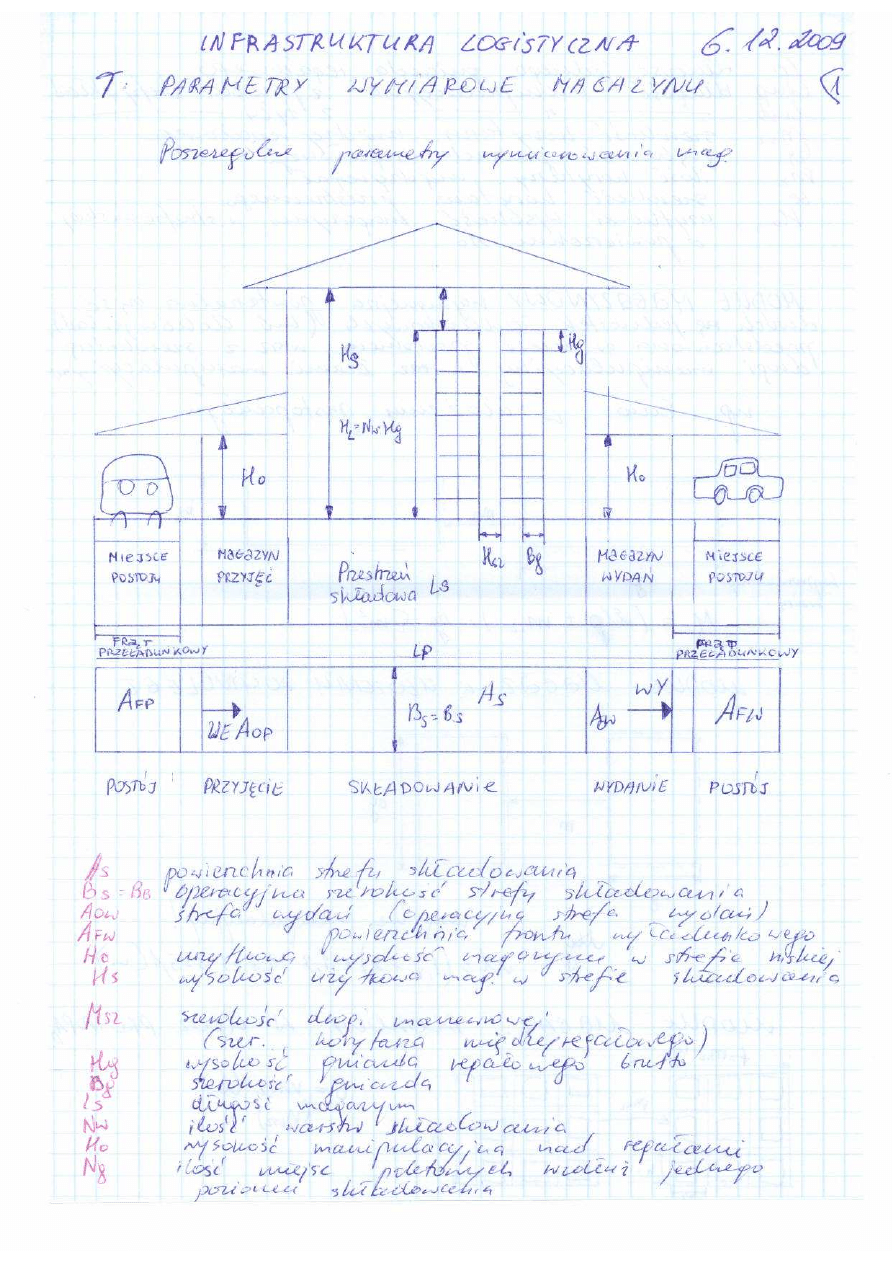 INFRASTRUKTURA LOGISTYCZNA 6.12.2009
T: PARAMETRY WYMIAROWE MAGAZYNU 1
Poszczególne parametry wymiarowania mag.
Hs
Hg
HL=Nw·Hg
Ho
Ho
MIEJSCE POSTOJU
MAGAZYN PRZYJĘĆ
Przestrzeń składowa
Ls
Hsz
Bg
MAGAZYN WYDAŃ
MIEJSCE POSTOJU
PRZEŁADUNKOWY
LP
PRZEŁADUNKOWY
AFP
WE AOP
Bs=Bs
As
WY
AFW
POSTÓJ PRZYJĘCIE SKŁADOWANIE WYDANIE POSTÓJ
As powierzchnia strefy składowania
Bs = BB operacyjna szerokość strefy składowania
AOW strefa wydań (operacyjna strefa wydań)
AFW powierzchnia frontu wyładunkowego
Ho użytkowa wysokość magazynu w strefie niskiej
Hs wysokość użytkowa mag. w strefie składowania
Msz szerokość drogi manewrowej
(szer. korytarza międzyregałowego)
Hg wysokość gniazda regałowego brutto
Bg szerokość gniazda
Ls długość magazynu
Nw ilość warstw składowania
Ho wysokość manipulacyjna nad regałami
Ng ilość miejsc paletowych wzdłuż jednego
poziomu składowania